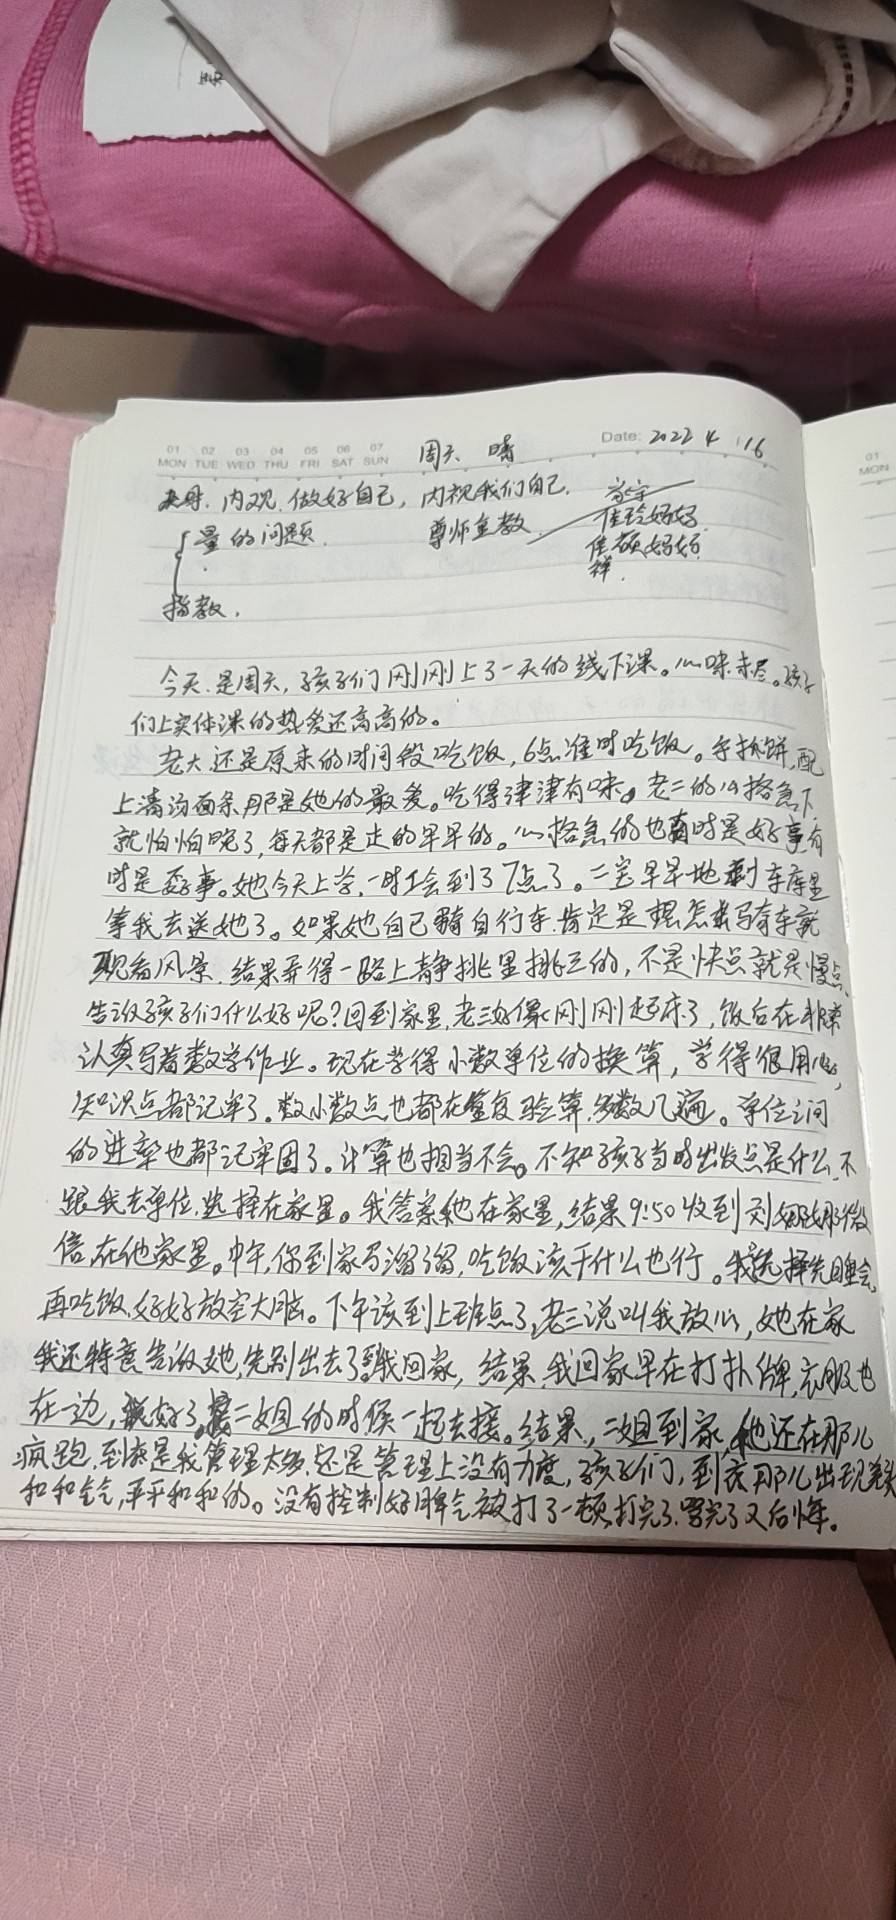 01 02 03 04 05 06 07
MON TUE WED THU FRI SAT SUN 周天 晴 Date: 2022 4 16
内观.做好自己，内视我们自己.
量的问题 尊师重教 佳玲妈妈
佳硕妈妈
祥.
指教.
今天.是周天，孩子们刚刚上了一天的线下课。心味未尽。孩子
们上实体课的热爱还高高的。
老大还是原来的时间段吃饭，6点准时吃饭。手抓饼,配
上清汤面条那是她的最爱。吃得津津有味。老二的心格急下
就怕怕晚了,每天都是走的早早的。心格急的也有时是好事有
时是歪事。她今天上学,一时工会到了7点了。二宝早早地到车库里
等我去送她了。如果她自己骑自行车.肯定是骑车就
观看风景,结果弄得一路上静挑里挑三的,不是快点就是慢点.
告诉孩子们什么好呢?回到家里,老三好像刚刚起床了,饭后在非常
认真写着数学作业。现在学得小数单位的换算，学得很用心,
知识点都记牢了.数小数点也都在重复验算,多数几遍。单位之间
的进率也都记牢固了。计算也相当不会。不知孩子当时出发点是什么.不
跟我去单位,选择在家里。我答案他在家里,结果9:50收到刘娜娜微
信,在他家里。中午,你到家写溜溜,吃饭该干什么也行。我选择先睡会,
再吃饭.好好放空大脑。下午该到上班点了,老三说叫我放心,她在家
我还特意告诉她,先别出去了等我回家，结果,我回家早在打扑牌,衣服也
在一边,接二姐的时候一起去接。结果，二姐到家,他还在那儿
疯跑.到底是我管理太多.还是管理上没有力度,孩子们,到底那儿出现差头
和和气气,平平和和的。没有控制好脾气被打了一顿,打完了.骂完了又后悔。
01
MON